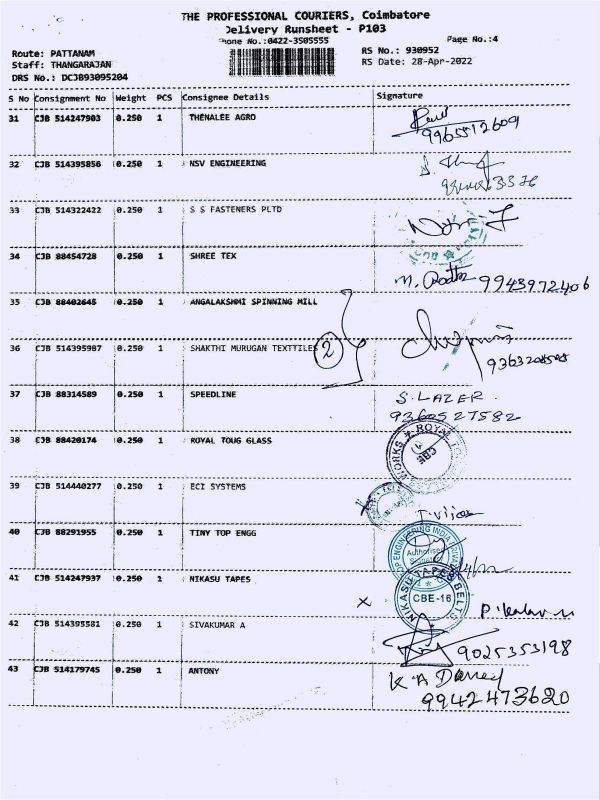 THE PROFESSIONAL COURIERS, Coimbatore
Delivery Runsheet - P103
Phone No.:0422-3505555 Page No.:4
Route: PATTANAM RS No.: 930952
Staff: THANGARAJAN RS Date: 28-Apr-2022
DRS No.: DCJB93095204
S No Consignment No Weight PCS Consignee Details Signature
31 CJB 514247903 0.250 1 THENALEE AGRO
9965512609
32 CJB 514395856 0.250 1 NSV ENGINEERING
33 CJB 514322422 0.250 1 S S FASTENERS PLTD
34 CJB 88454728 0.250 1 SHREE TEX
9943972406
35 CJB 88402645 0.250 1 ANGALAKSHMI SPINNING MILL
36 CJB 514395987 0.250 1 SHAKTHI MURUGAN TEXTTILES 2
37 CJB 88314589 0.250 1 SPEEDLINE S. LAZER.
9360527582
38 CJB 88420174 0.250 1 ROYAL TOUG GLASS
WORKS ★ ROYAL CBE
39 CJB 514440277 0.250 1 ECI SYSTEMS
40 CJB 88291955 0.250 1 TINY TOP ENGG
TOP ENGINEERING INDIA Authorised
41 CJB 514247937 0.250 1 NIKASU TAPES
NIKASU TAPES BELTS CBE-16
42 CJB 514395581 0.250 1 SIVAKUMAR A
9025353198
43 CJB 514179745 0.250 1 ANTONY
9942473620